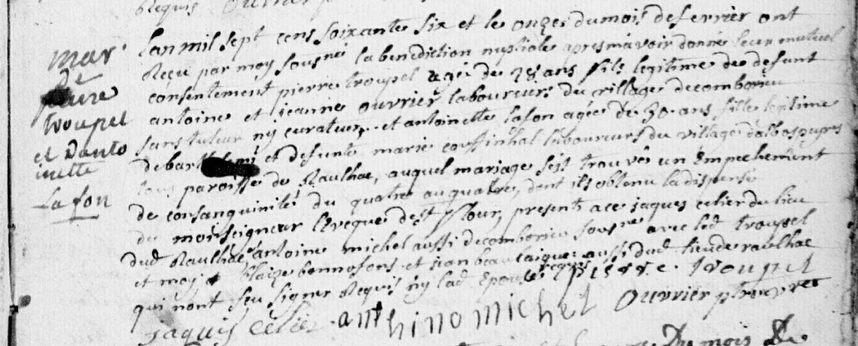 Requis
mar
de
pierre
troupel
et d'anto
inette
la fon
Lan mil sept cens soixante six et le onze du mois de fevrier ont
Reçu par moy sousné la benediction nuptiale apres mavoir donné leur mutuel
consentement pierre troupel agé de 28 ans fils legitime de defunt
antoine et jeanne ouvrier laboureurs du village de comborieu
sans tuteur ny curateur et antoinette lafon agée de 30 ans fille legitime
de et defunte marie couffinhal laboureurs du village
tous paroisse de Raulhac, auquel mariage sest trouvés un Empechement
de consanguinité du quatre au quatre, dont ils obtenu la dispense
de monseigneur Leveque de st flour, presents a ce jaques celier du lieu
dud Raulhac antoine michel aussi de comborieu sousnés avec led troupel
et moy blaize bonnefons et jean aussi dud lieu de raulhac
qui nont seu signer Requis ny lad Epouse requise pierre troupel
jaques celier anthino michel ouvrier
du mois de